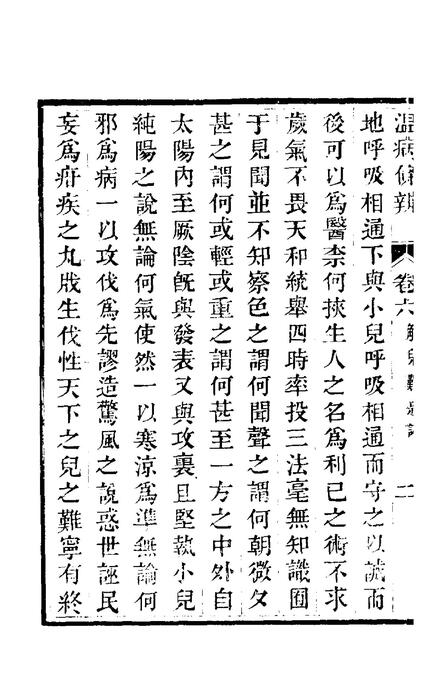 溫病條辨 卷六 解兒難總論 二
地呼吸相通下與小兒呼吸相通而守之以誠而
後可以爲醫柰何挾生人之名爲利己之術不求
歲氣不畏天和統舉四時率投三法毫無知識囿
于見聞並不知察色之謂何聞聲之謂何朝微夕
甚之謂何或輕或重之謂何甚至一方之中外自
太陽內至厥陰旣與發表又與攻裏且堅執小兒
純陽之說無論何氣使然一以寒涼爲準無論何
邪爲病一以攻伐爲先謬造驚風之說惑世誣民
妄爲疳疾之丸戕生伐性天下之兒之難寧有終